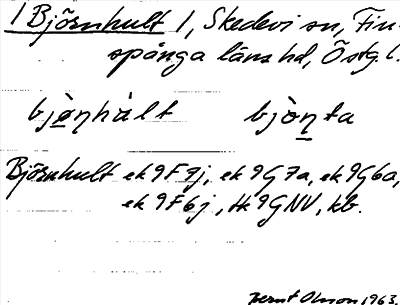 1 Björnhult 1, Skedevi sn, Fin-
spånga läns hd, Östg l.
bjò̱ṇhàlt bjòṇ̱ta
Björnhult ek 9F7j, ek 9G7a, ek 9G6a,
ek 9F6j, Hk 9GNV, kb.
Bernt Olsson 1963.